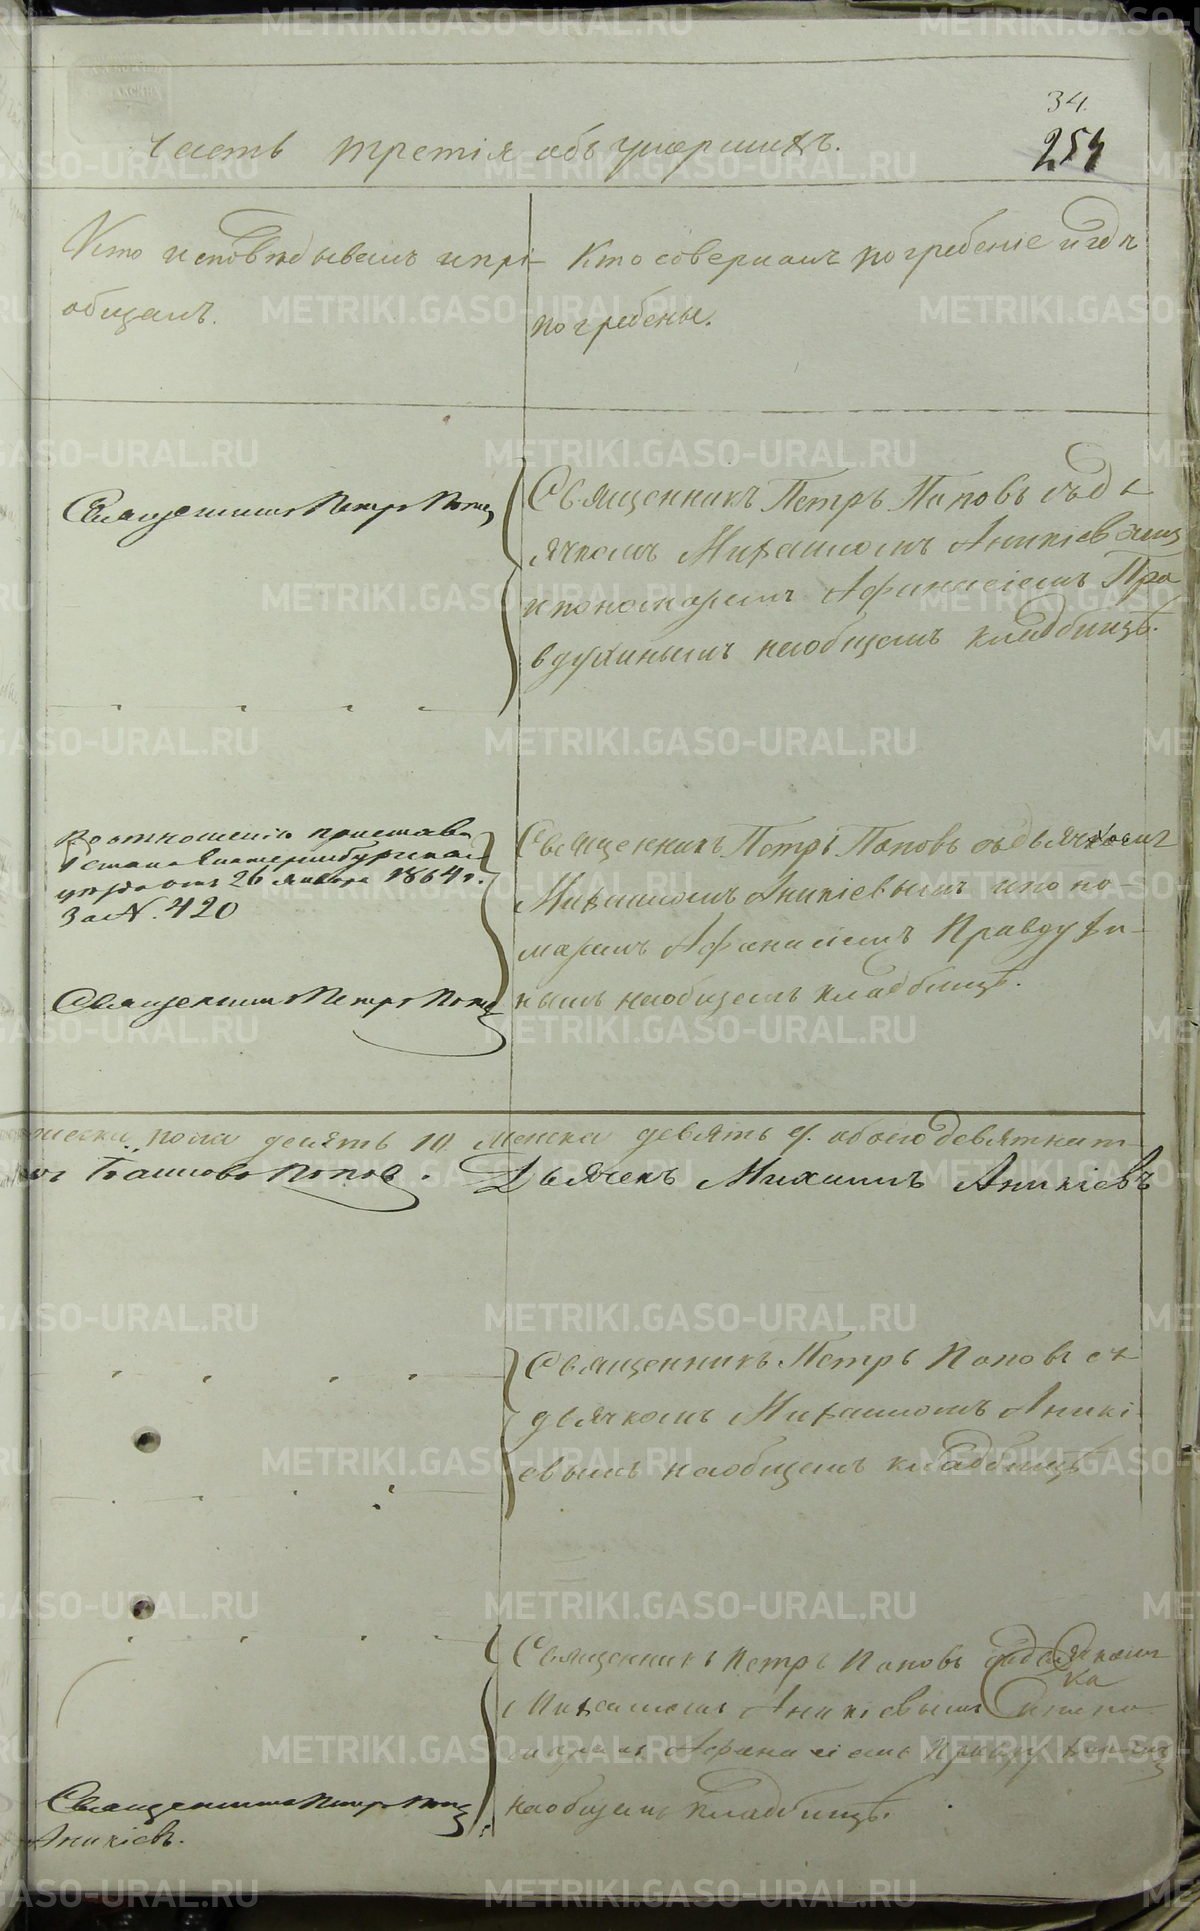 34.
254
Часть третія объ умершихъ.
Кто исповѣдывалъ и прі-
общалъ.
Кто совершалъ погребеніе и гдѣ
погребены.
Священникъ Петръ Попов
Священникъ Петръ Поповъ съ дь
ячкомъ Михаиломъ Аникіевымъ
и пономаремъ Афанасіемъ Пра
вдухинымъ на общемъ кладбищѣ.
По отношенію пристава
1 стана Екатеринбургскаго
уѣзда отъ 26 января 1864 г.
За N. 420
Священникъ Петръ Попов
Священникъ Петръ Поповъ съ дьячкомъ
Михаиломъ Аникіевымъ и поно-
маремъ Афанасіемъ Правдухи-
нымъ на общемъ кладбищѣ.
пола десять 10 женска девять 9. обоего девятнат-
Попов. Дьячекъ Михаилъ Аникіевъ
Священникъ Петръ Поповъ съ
дьячкомъ Михаиломъ Аникі-
евымъ на общемъ кладбищѣ
Священникъ Петръ Поповъ съ дьячкомъ
Михаиломъ Аникіевымъ и поно-
маремъ Афанасіемъ Правдухинымъ
на общемъ кладбищѣ.
Священникъ Петръ Попов
Аникіевъ.
METRIKI.GASO-URAL.RU